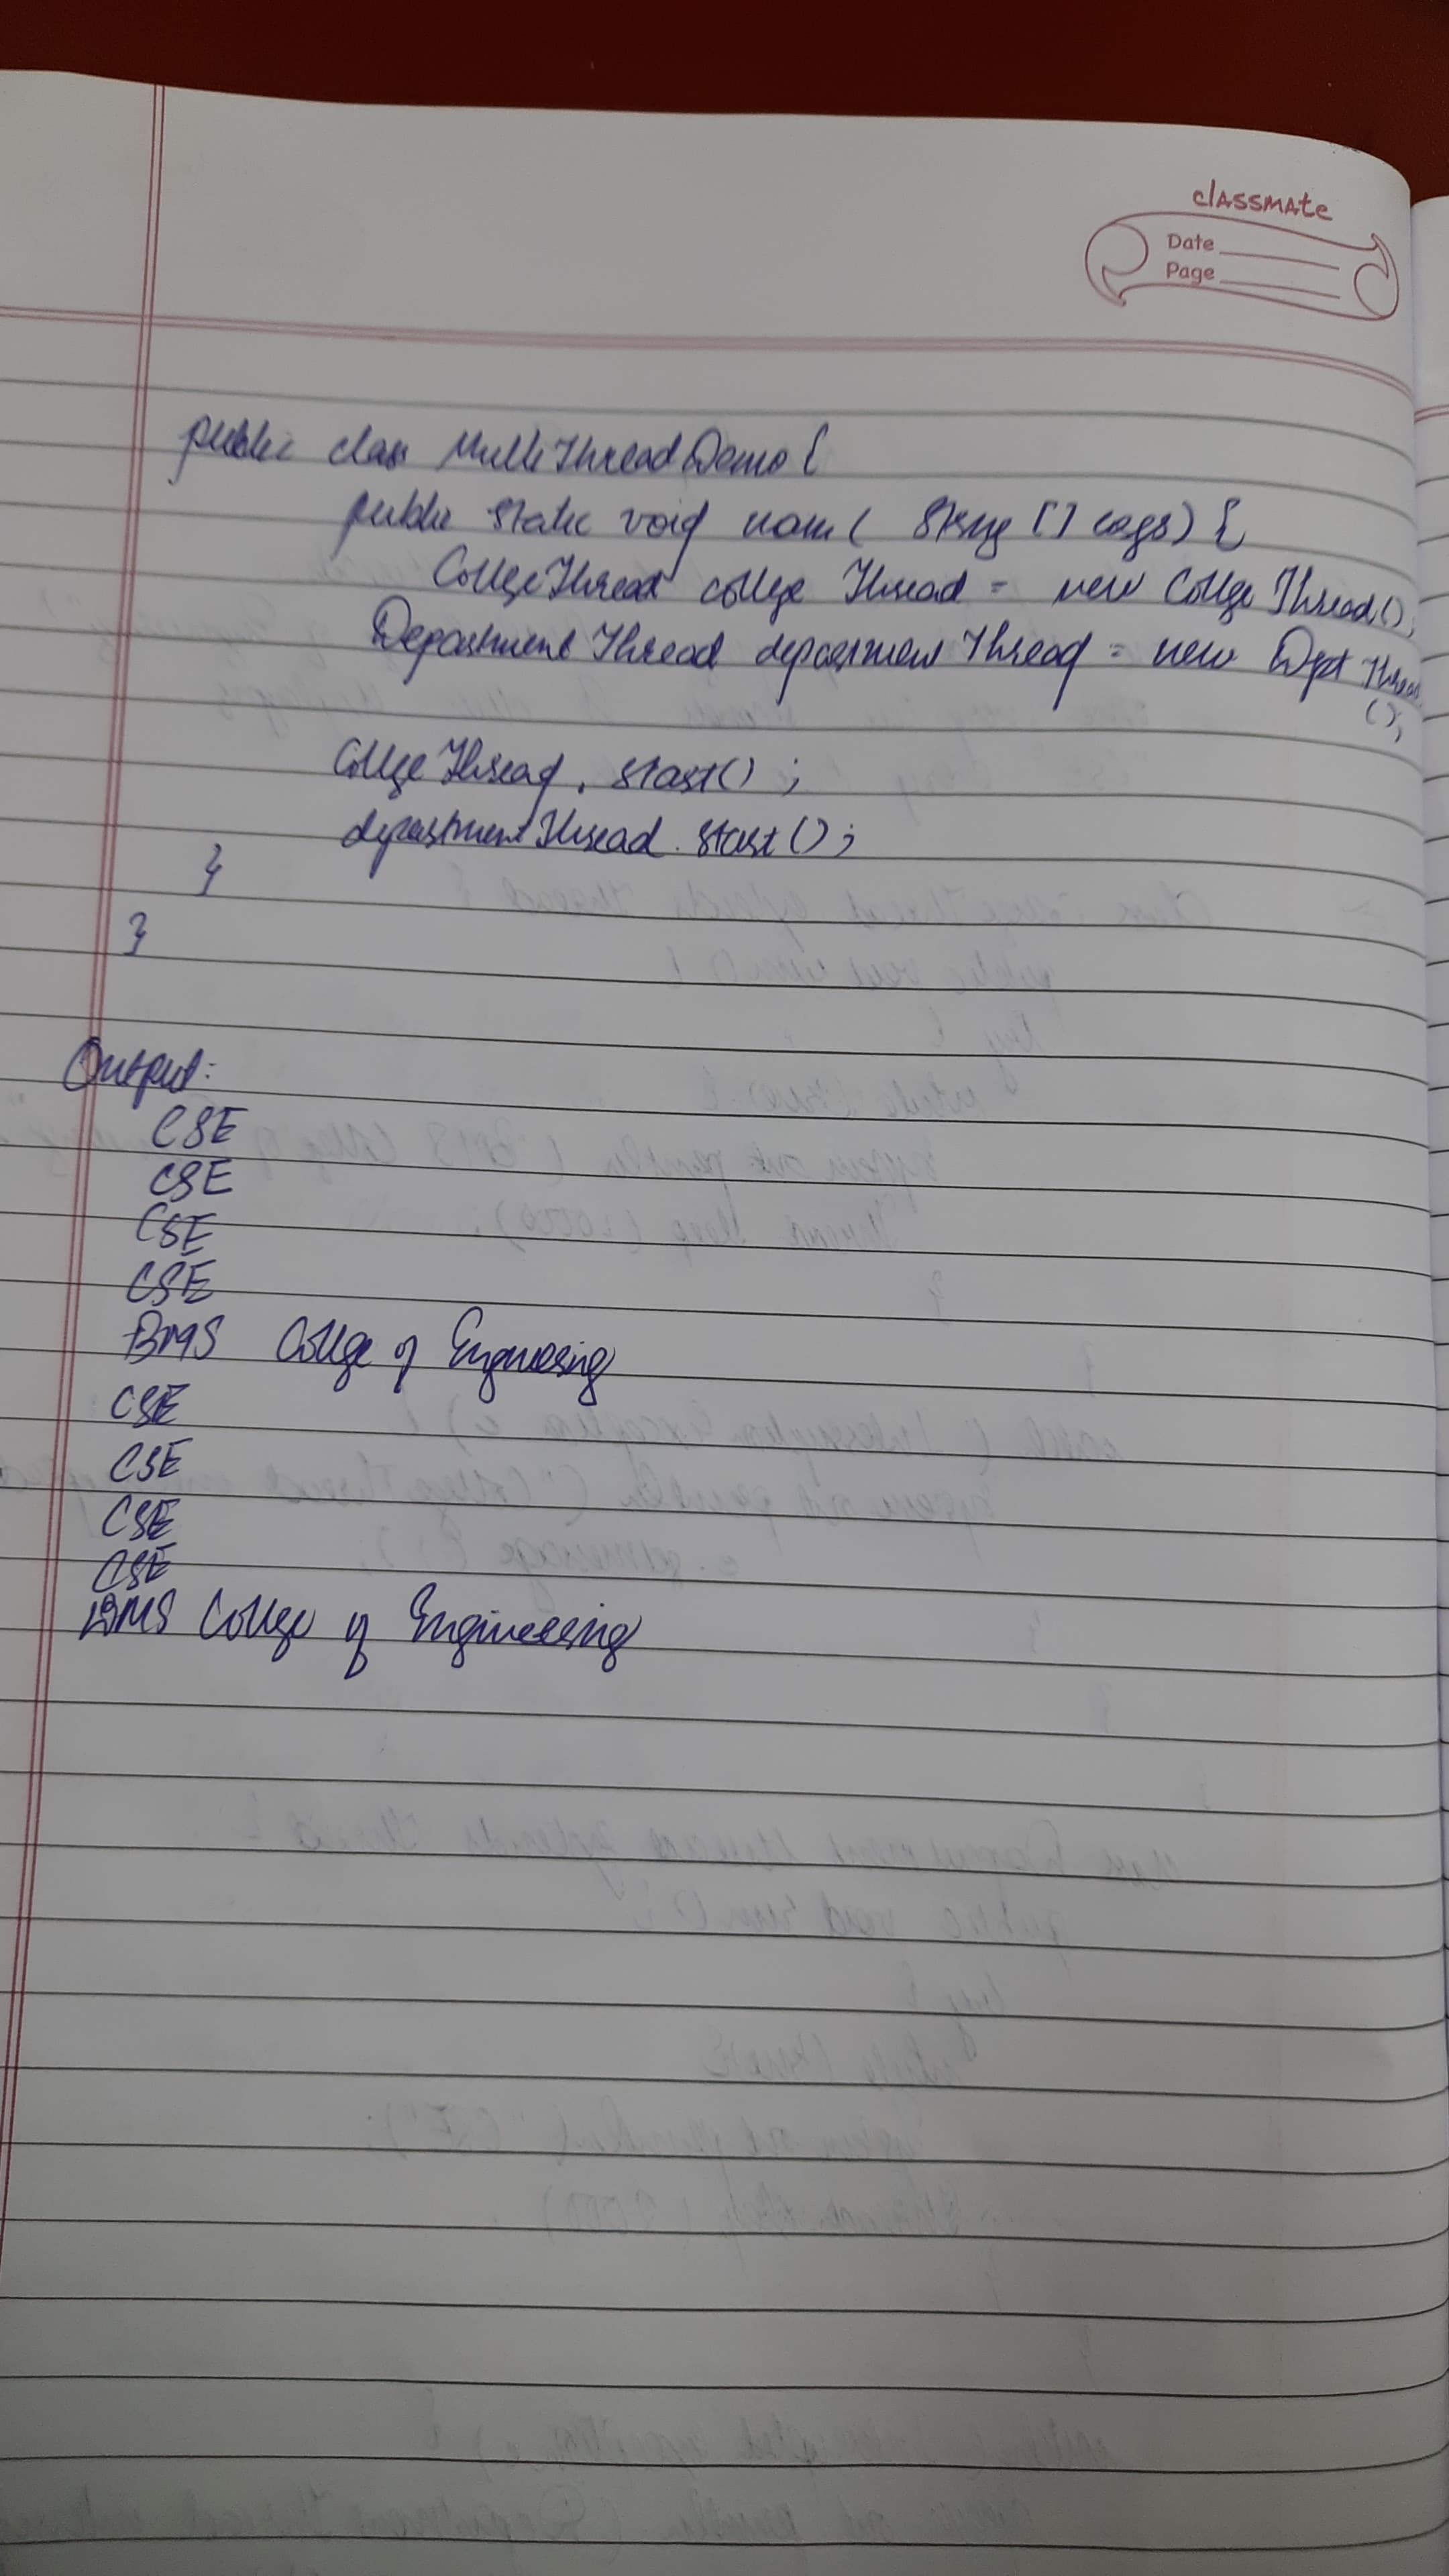 classmate
Date
Page
public class MultiThreadDemo {
public static void main ( String [] args) {
CollegeThread college Thread = new College Thread();
Department Thread department Thread = new Dept Thread
();
College Thread . start() ;
department Thread . start ();
}
}
Output:
CSE
CSE
CSE
CSE
BMS College of Engineering
CSE
CSE
CSE
CSE
BMS College of Engineering